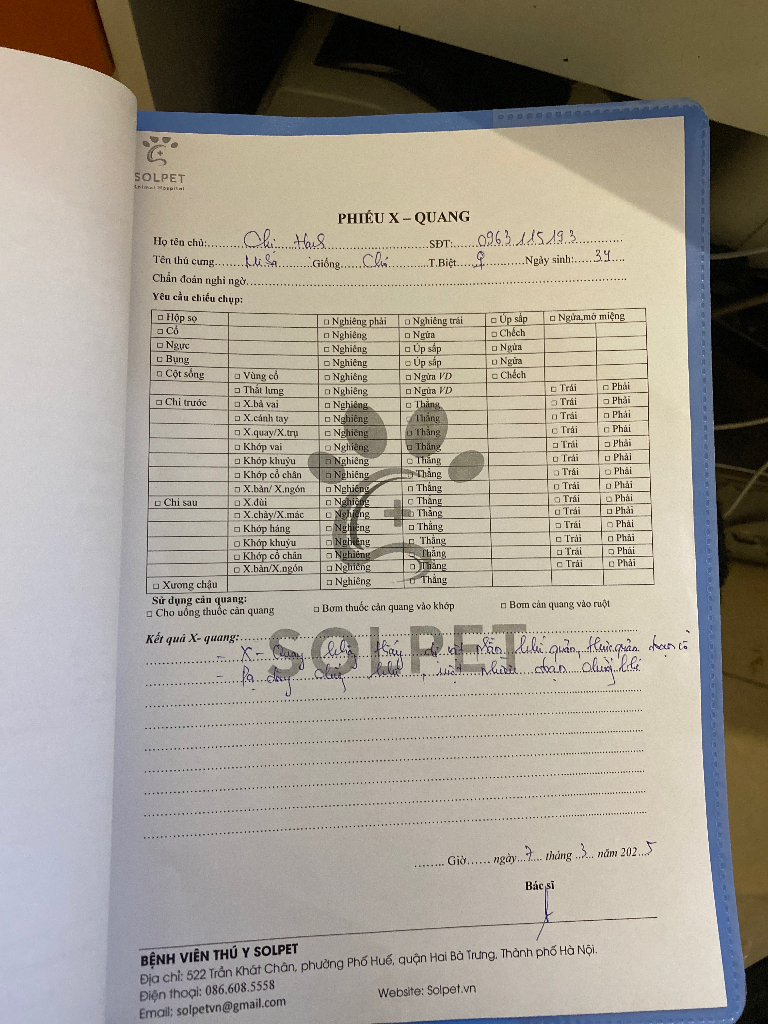 SOLPET
Animal Hospital
PHIẾU X – QUANG
Họ tên chủ: Chị SĐT: 0963115193
Tên thú cưng Giống Chó T.Biệt ♀ Ngày sinh: 3Y
Chẩn đoán nghi ngờ
Yêu cầu chiếu chụp:
□ Hộp sọ □ Nghiêng phải □ Nghiêng trái □ Úp sấp □ Ngửa,mở miệng
□ Cổ □ Nghiêng □ Ngửa □ Chếch
□ Ngực □ Nghiêng □ Úp sấp □ Ngửa
□ Bụng □ Nghiêng □ Úp sấp □ Ngửa
□ Cột sống □ Vùng cổ □ Nghiêng □ Ngửa VD □ Chếch
□ Thắt lưng □ Nghiêng □ Ngửa VD □ Trái □ Phải
□ Chi trước □ X.bả vai □ Nghiêng □ Thẳng □ Trái □ Phải
□ X.cánh tay □ Nghiêng Thẳng □ Trái □ Phải
□ X.quay/X.trụ □ Nghiêng □ Thẳng □ Trái □ Phải
□ Khớp vai □ Nghiêng □ Thẳng □ Trái □ Phải
□ Khớp khuỷu □ Nghiêng □ Thẳng □ Trái □ Phải
□ Khớp cổ chân □ Nghiêng □ Thẳng □ Trái □ Phải
□ X.bàn/ X.ngón □ Nghiêng □ Thẳng □ Trái □ Phải
□ Chi sau □ X.đùi □ Nghiêng □ Thẳng □ Trái □ Phải
□ X.chày/X.mác □ Nghiêng □ Thẳng □ Trái □ Phải
□ Khớp háng □ Nghiêng □ Thẳng □ Trái □ Phải
□ Khớp khuỷu □ Nghiêng □ Thẳng □ Trái □ Phải
□ Khớp cổ chân □ Nghiêng □ Thẳng □ Trái □ Phải
□ X.bàn/X.ngón □ Nghiêng □ Thẳng □ Trái □ Phải
□ Xương chậu □ Nghiêng □ Thẳng
Sử dụng cản quang:
□ Cho uống thuốc cản quang □ Bơm thuốc cản quang vào khớp □ Bơm cản quang vào ruột
Kết quả X- quang:
SOLPET
- X-Quang không thấy dị vật cản khí quản, thực quản đoạn cổ
- Dạ dày chứa khí, một nhiều đoạn chướng khí
Giờ ngày 7 tháng 3 năm 2025
Bác sĩ
BỆNH VIỆN THÚ Y SOLPET
Địa chỉ: 522 Trần Khát Chân, phường Phố Huế, quận Hai Bà Trưng, Thành phố Hà Nội.
Điện thoại: 086.608.5558
Email: solpetvn@gmail.com Website: Solpet.vn